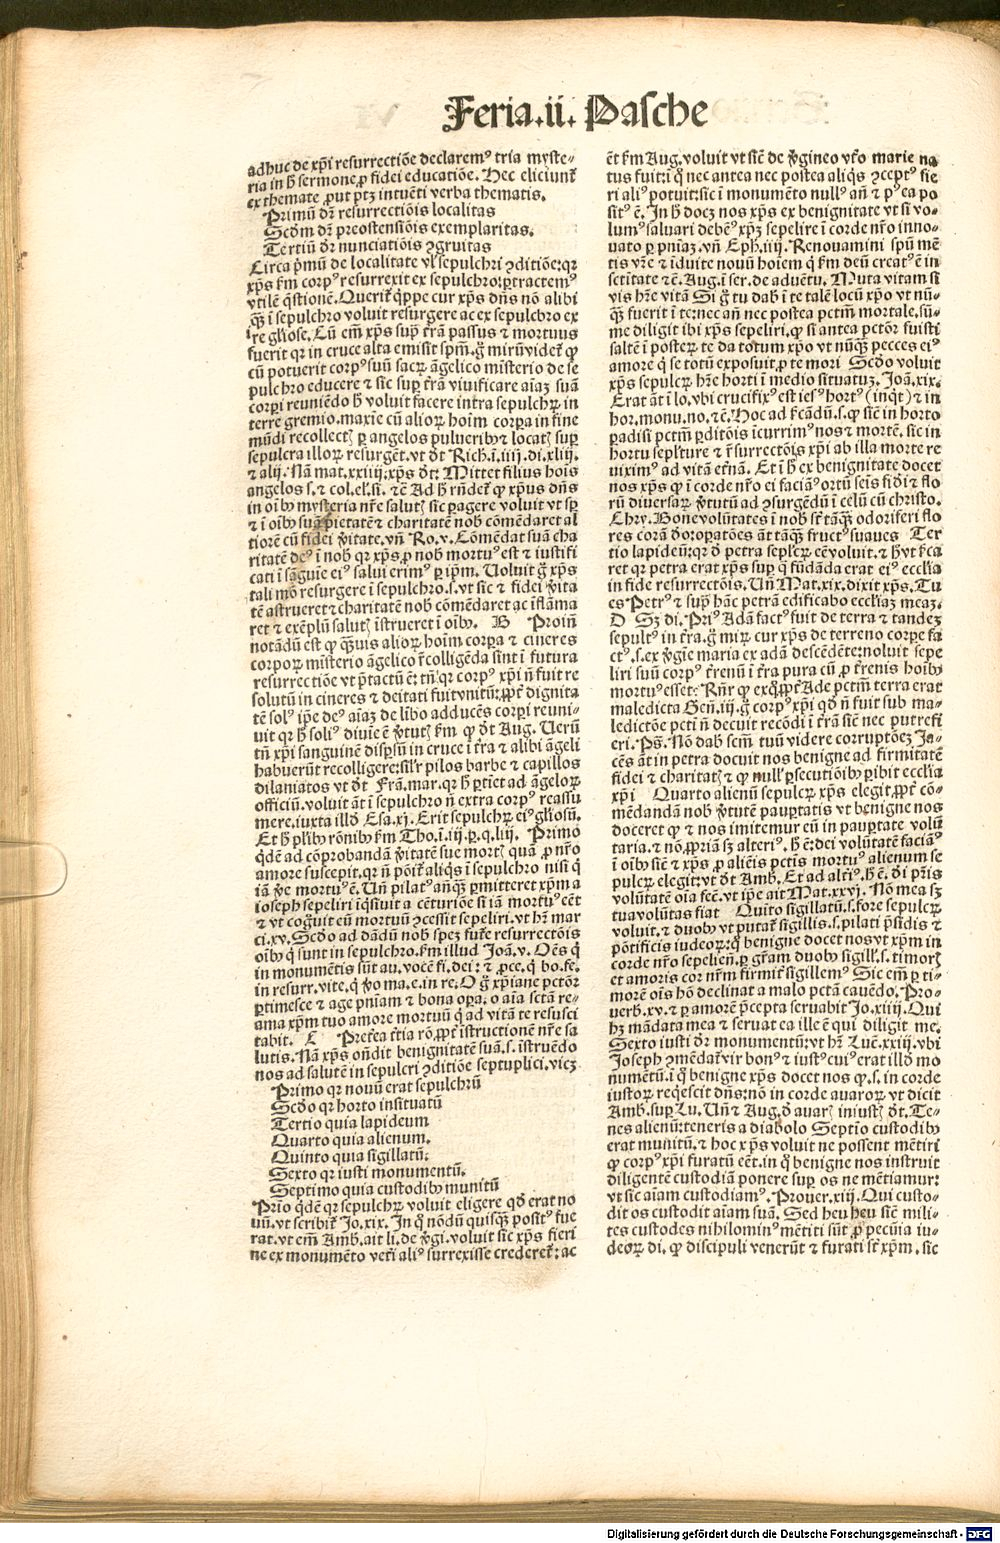 Feria.ii. Pasche
adhuc de xp̄i resurrectiōe declarem⁹ tria myste-
ria in h̄ sermone, ꝓ fidei educatiōe. Hec eliciunt̄
ex themate ꝓut ptꝫ intuēti verba thematis.
Primū dr̄ resurrectiōis localitas
Scd̄m dr̄ preostensiōis exemplaritas.
Tertiū dr̄ nunciatiōis ꝯgruitas
Circa p̄mū de localitate vl̓ sepulchri ꝯditiōe: qr
xp̄s km̄ corp⁹ resurrexit ex sepulchro: ptractem⁹
vtilē q̄stionē. Querit̄ q̄ppe cur xp̄s dn̄s nō alibi
qꝫ̄ ī sepulchro voluit resurgere ac ex sepulchro ex
ire gl̓iose. Cū em̄ xp̄s sup̄ tr̄ā passus ⁊ mortuus
fuerit qr in cruce alta emisit sp̄m. g̊ mirū videt̄ ꝙ
cū potuerit corp⁹ suū sacꝝ āgelico misterio de se
pulchro educere ⁊ sic suꝑ tr̄ā viuificare aīaꝫ suā
corꝑi reuniēdo h̄ voluit facere intra sepulchꝝ in
terre gremio. maxīe cū alioꝝ hoīm corꝑa in fine
mūdi recollectꝭ ꝑ angelos pulueribꝰ ⁊ locatꝭ suꝑ
sepulcra illoꝝ resurgēt. vt dt̄ Rich. ī.iiij.di.xliij.
⁊ alij. Nā mat.xxiiij.xp̄s dt̄: Mittet filius hoīs
angelos s. ⁊ col. el̓. sī. ⁊c̄ Ad h̄ rn̄det̄ ꝙ xp̄us dn̄s
in oībꝰ mysteria nr̄e salutꝭ sic ꝑagere voluit vt sꝑ
⁊ ī oībꝰ suā pietatē ⁊ charitatē nob̄ cōmēdaret al
tiorē cū fidei v̓itate. vn̄ Ro.v. Cōmēdat suā cha
ritatē de⁹ ī nob̄ qr xp̄s ꝓ nob̄ mortu⁹ est ⁊ iustifi
cati ī sāguie ei⁹ salui erim⁹ ꝑ ip̄m. Voluit g̊ xp̄s
tali mō resurgere ī sepulchro .s. vt sic ⁊ fidei v̓ita
tē astrueret ⁊ charitatē nob̄ cōmēdaret ac īflāma
ret ⁊ exēplū salutꝭ īstrueret ī oībꝰ. B Proin̄
notādū est ꝙ qꝫ̄uis alioꝝ hoīm corꝑa ⁊ cineres
corpoꝝ misterio āgelico r̄colligēda sint ī futura
resurrectiōe vt p̄tactū ē: tn̄ qr corp⁹ xp̄i n̄ fuit re
solutū in cineres ⁊ deitati fuit vnitū: ꝓpt̄ dignita
tē sol⁹ ip̄e de⁹ aīaꝫ de lībo adducēs corꝑi reuni-
uit qr h̄ soli⁹ diuīe ē v̓tutꝭ km̄ ꝙ dt̄ Aug. Uerū
tn̄ xp̄i sanguinē disꝑsū in cruce ī tr̄a ⁊ alibi āgeli
habuerūt recolligere: sil̓r pilos barbe ⁊ capillos
dilaniatos vt dt̄ Frā. mar. qr h̄ ꝑtiet ad āgeloꝝ
officiū. voluit āt ī sepulchro n̄ extra corp⁹ reassu
mere. iuxta illd̄ Esa.xj. Erit sepulchꝝ ei⁹ gl̓iosū.
Et h̄ pl̓ibꝰ rōnibꝰ km̄ Tho. ī.iij.ꝑ.q.liij. Primo
q̓dē ad cōprobandā v̓itatē sue mortꝭ quā ꝓ nr̄o
amore suscepit. qr n̄ pōit̄ aliqs ī sepulchro nisi q̓
iā v̓e mortu⁹ ē. Un̄ pilat⁹ anq̄ꝫ ꝑmitteret xp̄m a
ioseph sepeliri īqsiuit a cēturiōe si iā mortu⁹ cēt
⁊ vt cog̊uit eū mortuū ꝯcessit sepeliri. vt hr̄ mar
ci.xv. Scd̄o ad dādū nob̄ spez̄ futur̄e resurrectōis
oībꝰ q̓ sunt in sepulchro. km̄ illud Joā.v. Oēs q̓
in monumētis sūt au. vocē fi. dei: ⁊ ꝓce. q̓ bo. fe.
in resurr. vite. q̓ v̓o ma. e. in re. O g̊ xp̄iane pctōr
ꝑtimesce ⁊ age pn̄iam ⁊ bona oꝑa. o aīa sctā re-
ama xp̄m tuo amore mortuū q̓ ad vitā te resusci
tabit. C Pret̄ea tr̄tia rō. ꝓpt̄ īstructionē nr̄e sa
lutis. Nā xp̄s ondit benignitatē suā .s. īstruēdo
nos ad salutē in sepulcri ꝯditiōe septuplici. vicꝫ
Primo qr nouū erat sepulchrū
Scd̄o qr horto insituatū
Tertio quia lapideum
Quarto quia alienum.
Quinto quia sigillatū:
Sexto qr iusti monumentū.
Septimo quia custodibꝰ munitū
Prīo q̓dē qr sepulchꝝ voluit eligere qd̓ erat no
uū. vt scribit̄ Jo.xix. In q̓ nōdū quisqꝫ̄ posit⁹ fue
rat. vt em̄ Amb. ait li. de v̓gi. voluit sic xp̄s fieri
ne ex monumēto vet̄i ali⁹ surrexisse crederet̄: ac
ēt km̄ Aug. voluit vt siē de v̓gineo vt̄o marie na
tus fuit: ī q̓ nec antea nec postea aliqs ꝯcept⁹ fie
ri ali⁹ potuit: sic ī monumēto null⁹ añ ⁊ p⁹ea po
sit⁹ ē. In h̄ docꝫ nos xp̄s ex benignitate vt si vo-
lum⁹ saluari debe⁹ xp̄ꝫ sepelire ī corde nr̄o inno-
uato ꝑ pn̄iaꝫ. vn̄ Eph.iiij. Renouamini spū mē
tis vr̄e ⁊ īduite nouū hoiem q̓ km̄ deū creat⁹ ē in
sctitate ⁊c̄. Aug. ī ser. de aduētu. Muta vitam si
vis hr̄e vitā Si g̊ tu dab̄ ī te talē locū xp̄o vt nū-
qꝫ̄ fuerit ī te: nec añ nec postea pctm̄ mortale. sū-
me diligit ibi xp̄s sepeliri. ꝙ si antea pctōr fuisti
saltē ī posterꝝ te da totum xp̄o vt nūqꝫ̄ pecces ei⁹
amore q̓ se totū exposuit ꝓ te mori Scd̄o voluit
xp̄s sepulcꝝ hr̄e horti ī medio situatuꝫ. Joā.xix.
Erat āt ī lo. vbi crucifix⁹ est ies⁹ hort⁹ (inq̓t) ⁊ in
hor. monu. no. ⁊c̄. Hoc ad r̄cādū .s. ꝙ siē in horto
paradisi pctm̄ ꝑditōis īcurrim⁹ nos ⁊ mortē. sic in
hortu sepl̓ture ⁊ r̄surrectōis xp̄i ab illa morte re
uixim⁹ ad vitā et̄nā. Et ī h̄ ex benignitate docet
nos xp̄s ꝙ ī corde nr̄o ei facia⁹ ortū seis fidei ⁊ flo
rū diuersaꝝ v̓tutū ad ꝯsurgēdū ī celū cū christo.
Chry. Bone volūtates ī nob̄ st̄ tāqꝫ̄ odoriferi flo
res corā dn̄o: oꝑatōes āt tāqꝫ̄ fruct⁹ suaues Ter
tio lapideū: qr d̓ petra sepl̓cꝝ eē voluit. ⁊ h̄ vt r̄ca
ret qr petra erat xp̄s suꝑ q̓ fūdāda erat ei⁹ eccl̓ia
in fide resurrectōis. Un̄ Mat.xix.dixit xp̄s. Tu
es Petr⁹ ⁊ suꝑ hāc petrā edificabo eccl̓iaꝫ meaꝫ.
D Sꝫ di. Pri⁹ Adā fact⁹ fuit de terra ⁊ tandeꝫ
sepult⁹ in tr̄a. g̊ miꝝ cur xp̄s de terreno corꝑe fa
ct⁹ .s. ex v̓gie maria ex adā descēdēte: noluit sepe
liri suū corp⁹ tr̄renū ī tr̄a pura cū ꝓ tr̄enis hoībꝰ
mortu⁹ esset: Rn̄r ꝙ ex q̓ ꝓpt̄ Ade pctm̄ terra erat
maledicta Gen̄.iij. g̊ corp⁹ xp̄i qd̓ n̄ fuit sub ma-
ledictōe pcti n̄ decuit recōdi ī tr̄ā siē nec putrefi
eri. Ps̄. Nō dab̄ scm̄ tuū videre corruptōeꝫ Ja-
cēs āt in petra docuit nos benigne ad firmitatē
fidei ⁊ charitatꝭ ⁊ ꝙ null⁹ ꝑsecutiōibꝰ ꝑibit eccl̓ia
xp̄i Quarto alienū sepulcꝝ xp̄s elegit. ꝓpt̄ cō-
mēdandā nob̄ v̓tutē pauꝑtatis vt benigne nos
doceret ꝙ ⁊ nos imitemur eū in pauꝑtate volū
taria. ⁊ nō ꝓpriam sꝫ alteri⁹ .h̄ ē: dei volūtatē facia⁹
ī oībꝰ siē ⁊ xp̄s ꝓ alieīs pctis mortu⁹ alienum se
pulcꝝ elegit: vt dt̄ Amb. Et ad altr̄i⁹ .h̄ ē. di pr̄is
volūtatē oīa fec̄. vt ip̄e ait Mat.xxvj. Nō mea sꝫ
tua volūtas fiat Quīto sigillatū .s. fore sepulcꝝ
voluit. ⁊ duobꝰ vt putat̄ sigillis .s. pilati p̄sidis ⁊
pōtificis iudeoꝝ: q̓ benigne docet nos vt xp̄m in
corde nr̄o sepelien̄. ꝑ gr̄am duobꝰ sigill̓ .s. timorꝭ
et amoris cor nr̄m firmit̄ sigillem⁹ Sic em̄ ꝑ ti-
morē oīs hō declinat a malo pctā cauēdo. Pro-
uerb̄.xv. ⁊ ꝑ amorē p̄cepta seruabit Jo.xiiij. Qui
hꝫ mādata mea ⁊ seruat ea ille ē qui diligit me.
Sexto iusti dr̄ monumentū: vt hr̄ Luē.xxiij. vbi
Joseph ꝯmēdat̄ vir bon⁹ ⁊ iust⁹ cui⁹ erat illd̄ mo
numētū. ī q̓ benigne xp̄s docet nos ꝙ .s. in corde
iustoꝝ reqescit dn̄s: nō in corde auaroꝝ vt dicit
Amb. suꝑ Lu. Un̄ ⁊ Aug. d̓ auarꝭ iniustꝭ dt̄. Te-
nes alienū: teneris a diabolo Septīo custodibꝰ
erat munitū. ⁊ hoc xp̄s voluit ne possent mētiri
ꝙ corp⁹ xp̄i furatū eēt. in q̓ benigne nos instruit
diligentē custodiā ponere suꝑ os ne mētiamur:
vt sic aīam custodiam⁹. Prouer.xiij. Qui custo-
dit os custodit aīam suā. Sed heu heu siē mili-
tes custodes nihilomin⁹ mētiti sūt ꝓ pecūia iu-
deoꝝ di. ꝙ discipuli venerūt ⁊ furati st̄ xp̄m. sic
Digitalisierung gefördert durch die Deutsche Forschungsgemeinschaft - DFG